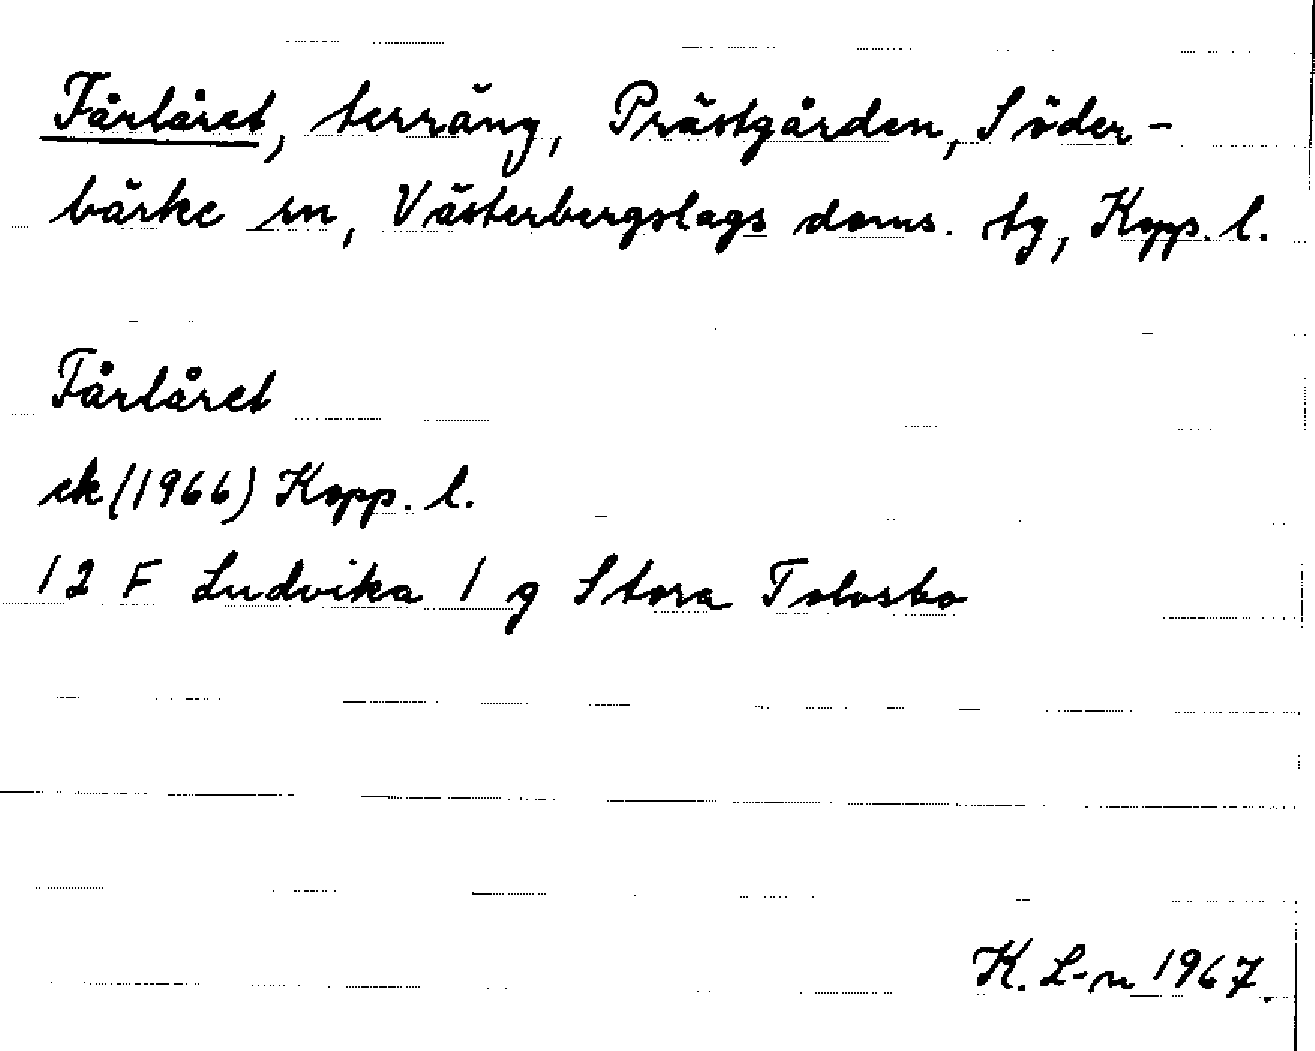 Fårlåret, terräng, Prästgården, Söder-
bärke sn, Västerbergslags doms. tg, Kopp. l.
Fårlåret
ek (1966) Kopp. l.
12 F Ludvika 1 g Stora Tolvsbo
K. L-n 1967.